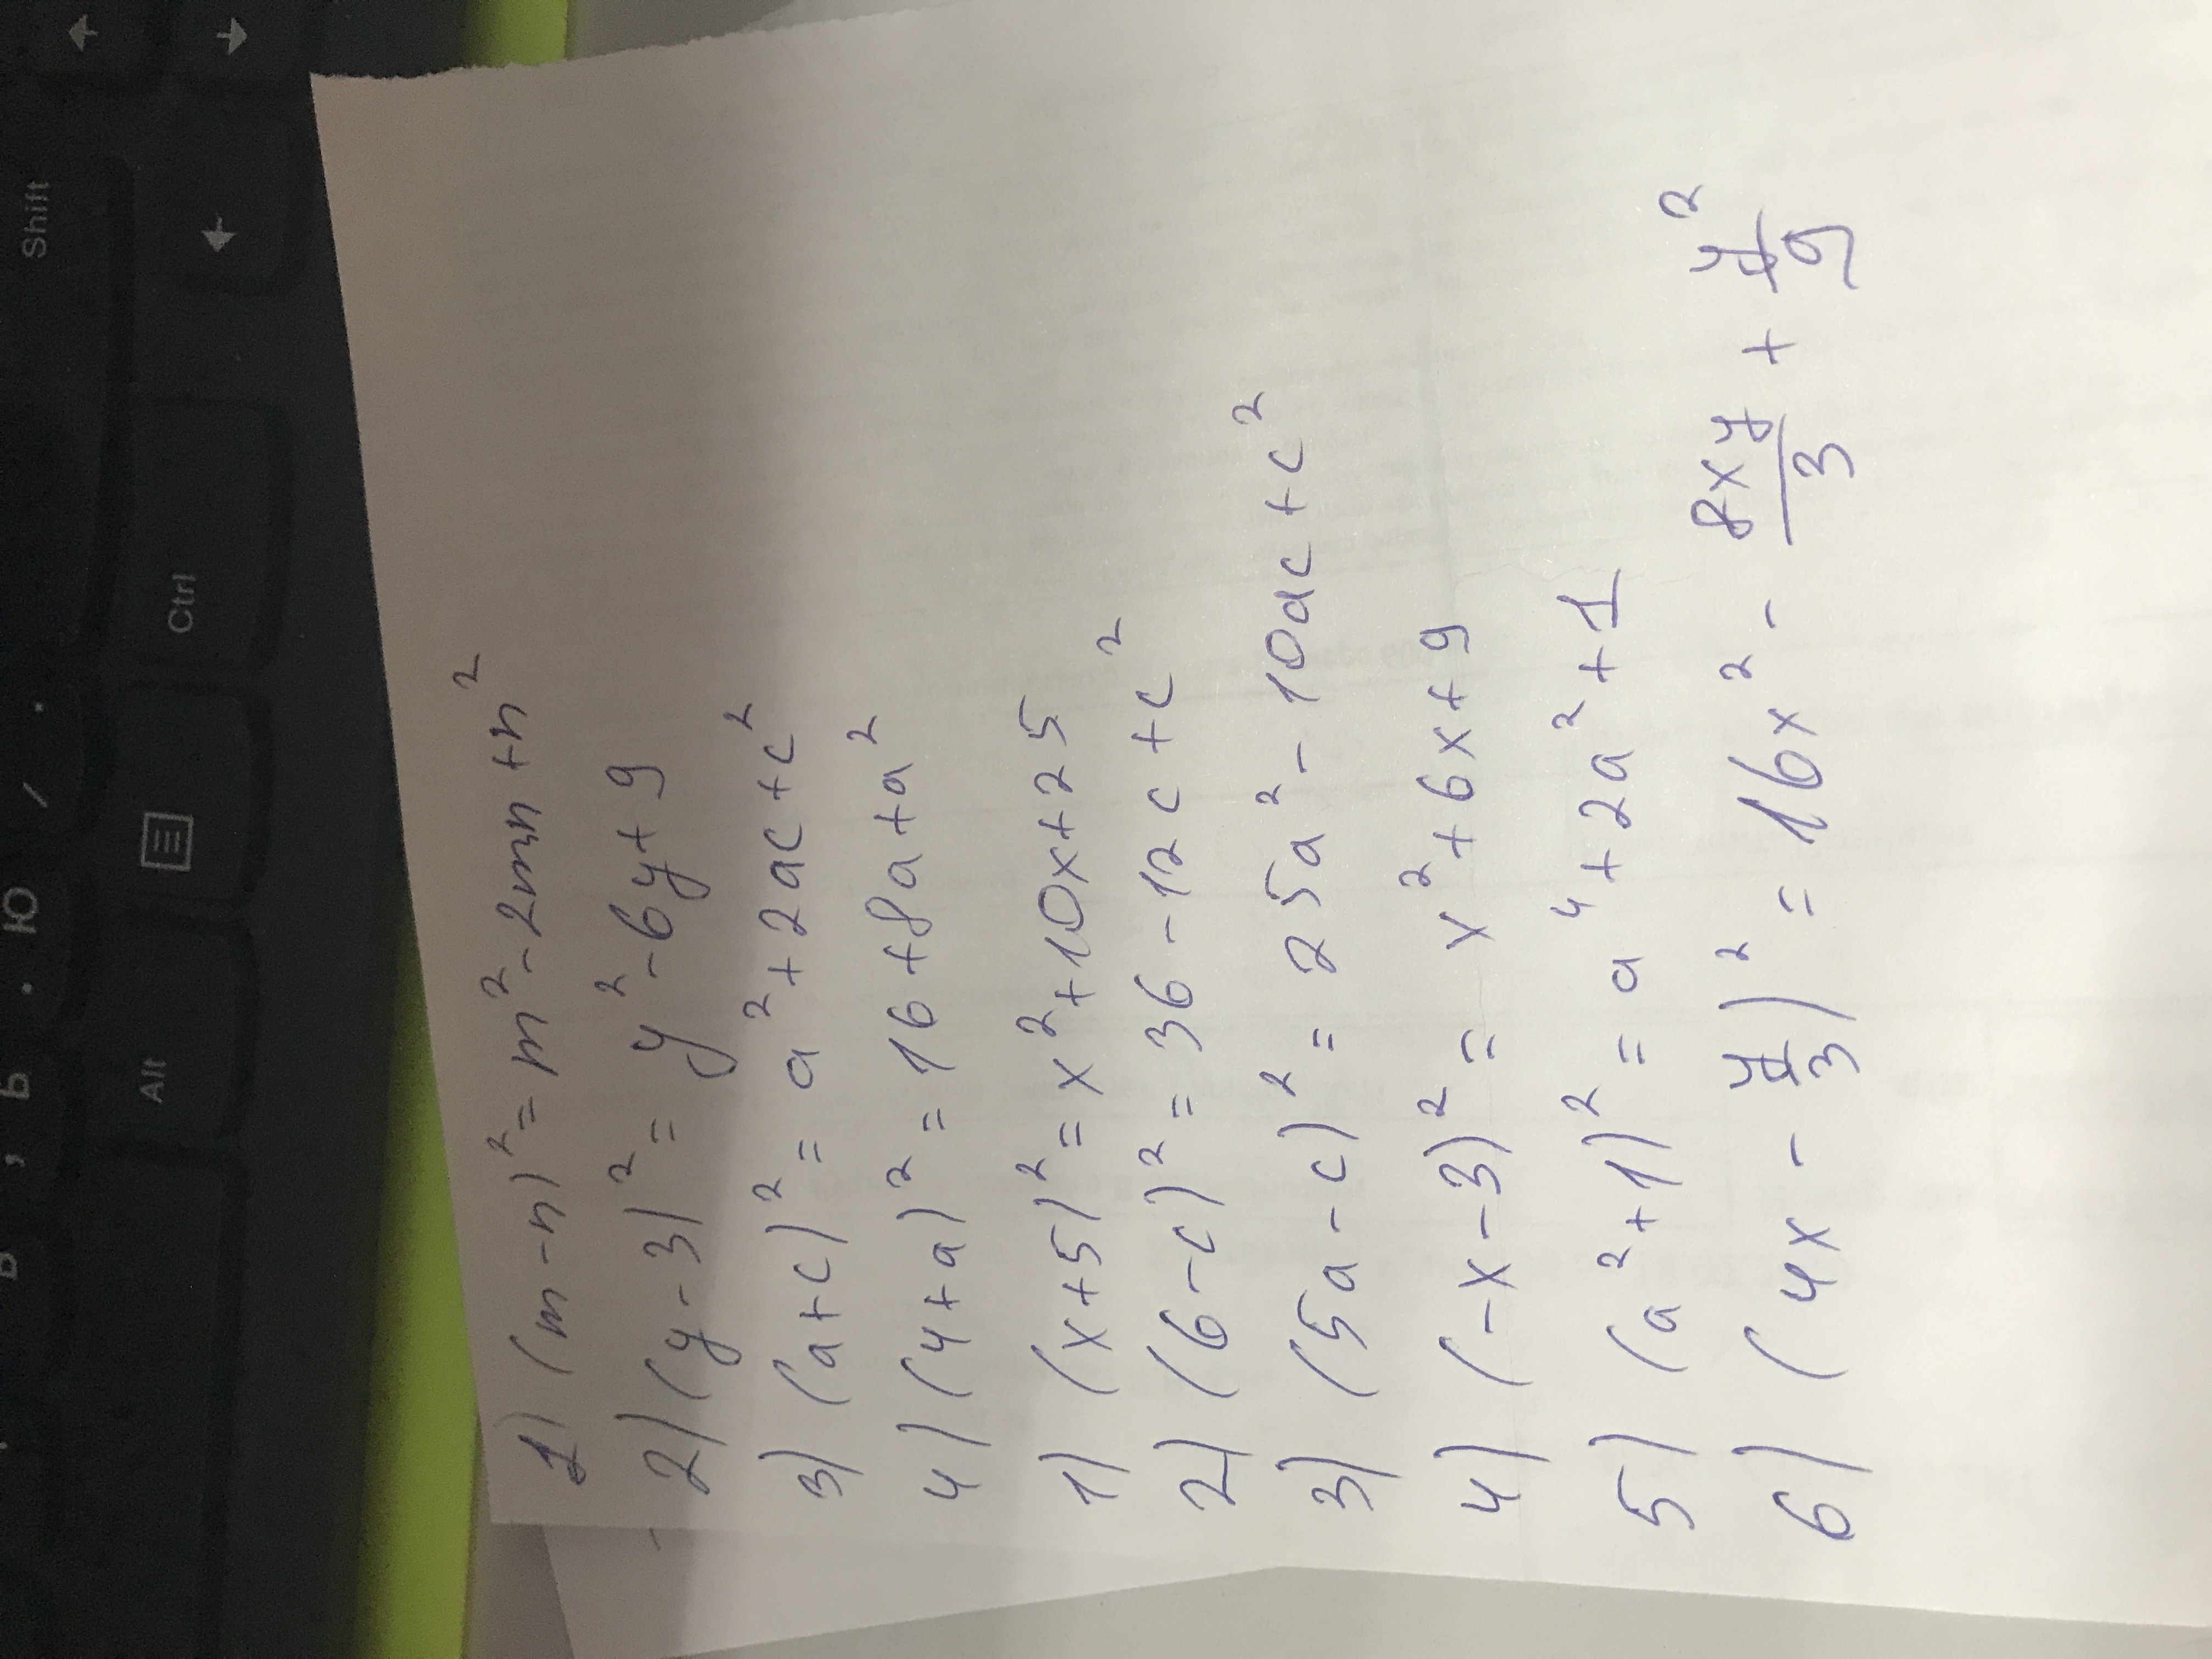 1) (m-n)² = m² - 2mn + n²
2) (y-3)² = y² - 6y + 9
3) (a+c)² = a² + 2ac + c²
4) (4+a)² = 16 + 8a + a²
1) (x+5)² = x² + 10x + 25
2) (6-c)² = 36 - 12c + c²
3) (5a-c)² = 25a² - 10ac + c²
4) (-x-3)² = x² + 6x + 9
5) (a²+1)² = a⁴ + 2a² + 1
6) (4x - y/3)² = 16x² - 8xy/3 + y²/9
Shift
Ctrl
Alt
Ю
Ь